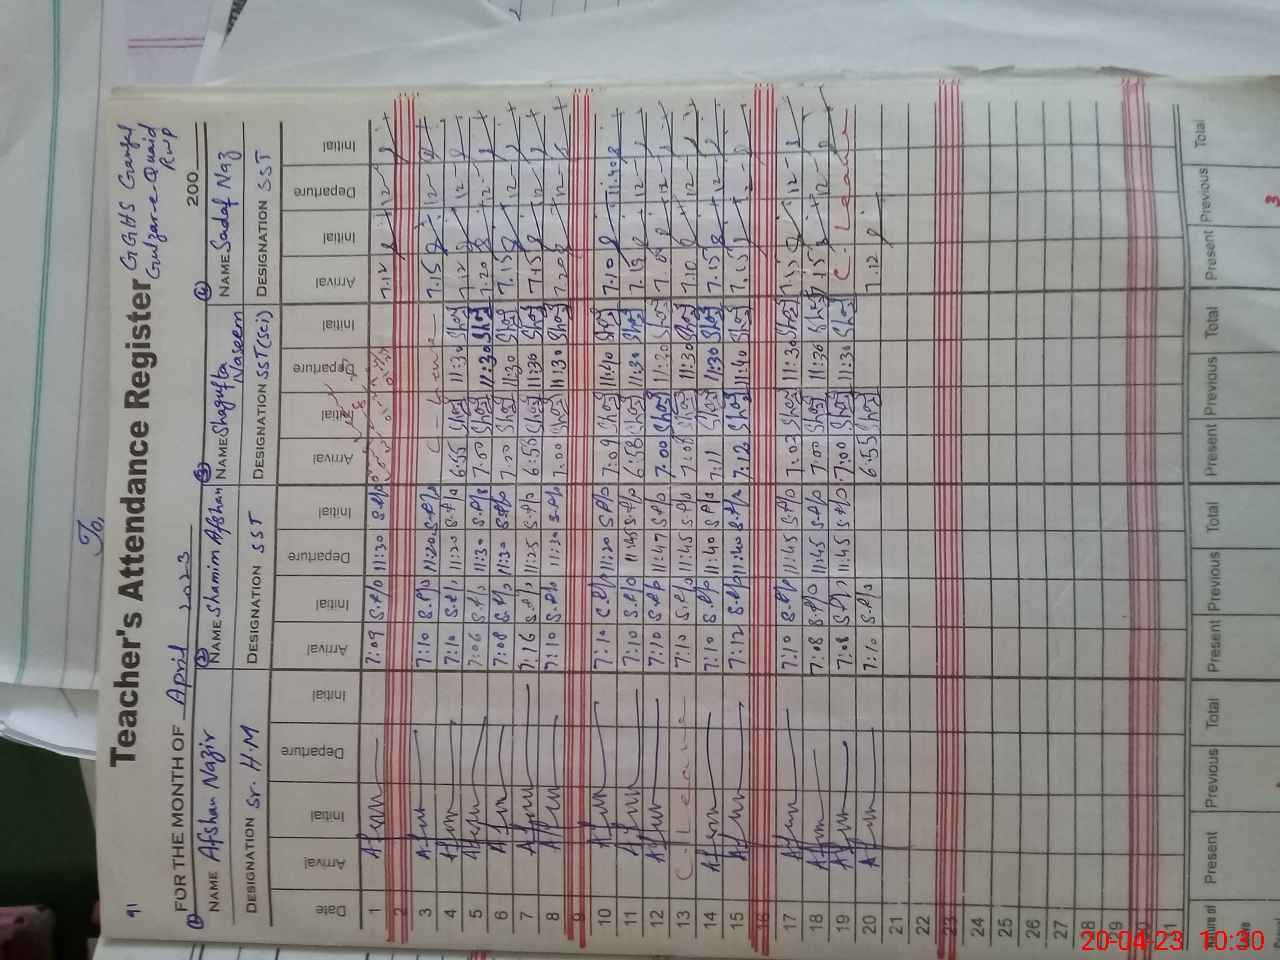 To,
91
Teacher's Attendance Register GGHS Ganjal
Gulzar-e-Quaid
RWP
FOR THE MONTH OF April 2023 200
① NAME Afshan Nazir ② NAME Shamim Afshan ③ NAME Shagufta Naseem ④ NAME Sadaf Naz
DESIGNATION Sr. H.M DESIGNATION SST DESIGNATION SST(Sci) DESIGNATION SST
Date Arrival Initial Departure Initial Arrival Initial Departure Initial Arrival Initial Departure Initial Arrival Initial Departure Initial
1 7:09 S.P/o 11:30 S.P/o 7.12 12
2
3 7:10 S.P/o 11:20 S.P/o C - Leave 7.15 12
4 7:10 S.P/o 11:20 S.P/o 6:55 11:30 7.12 12
5 7:06 S.P/o 11:30 S.P/o 7:00 11:30 7.20 12
6 7:08 S.P/o 11:30 S.P/o 7:00 11:30 7.15 12
7 7:16 S.P/o 11:25 S.P/o 6:55 11:30 7.15 12
8 7:10 S.P/o 11:30 S.P/o 7:00 11:30 7.20 12
9
10 7:10 S.P/o 11:20 S.P/o 7:09 11:40 7.10 11.40
11 7:10 S.P/o 11:45 S.P/o 6:58 11:30 7.15 12
12 7:10 S.P/o 11:47 S.P/o 7:00 11:30 12
13 C. Leave 7:10 S.P/o 11:45 S.P/o 7:08 11:30 7.10 12
14 7:10 S.P/o 11:40 S.P/o 7:11 11:30 7.15 12
15 7:12 S.P/o 11:40 S.P/o 7:12 11:40 7.15 12
16
17 7:10 S.P/o 11:45 S.P/o 7:03 11:30 12
18 7:08 S.P/o 11:45 S.P/o 7:00 11:30 7.15 12
19 7:08 S.P/o 11:45 S.P/o 7:00 11:30 C. Leave
20 7:10 S.P/o 6:55 7.12
21
22
23
24
25
26
27
28
29
30
Present Previous Total Present Previous Total Present Previous Total Present Previous Total
3
20-04-23 10:30